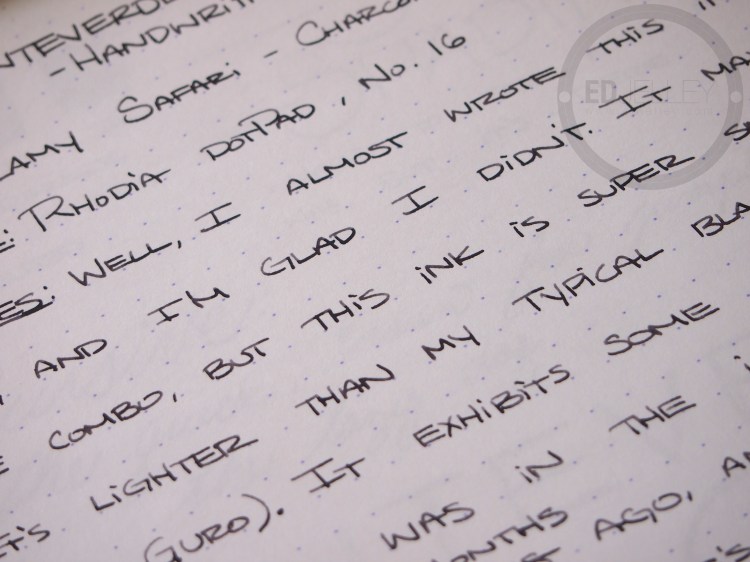 - HANDWRIT
LAMY SAFARI - CHARCO
RHODIA DOTPAD, NO. 16
WELL, I ALMOST WROTE THIS
AND I'M GLAD I DIDN'T. IT MA
COMBO, BUT THIS INK IS SUPER
LIGHTER THAN MY TYPICAL BLA
GURO). IT EXHIBITS SOME
WAS IN THE
ONTHS AGO,
ED JELLEY